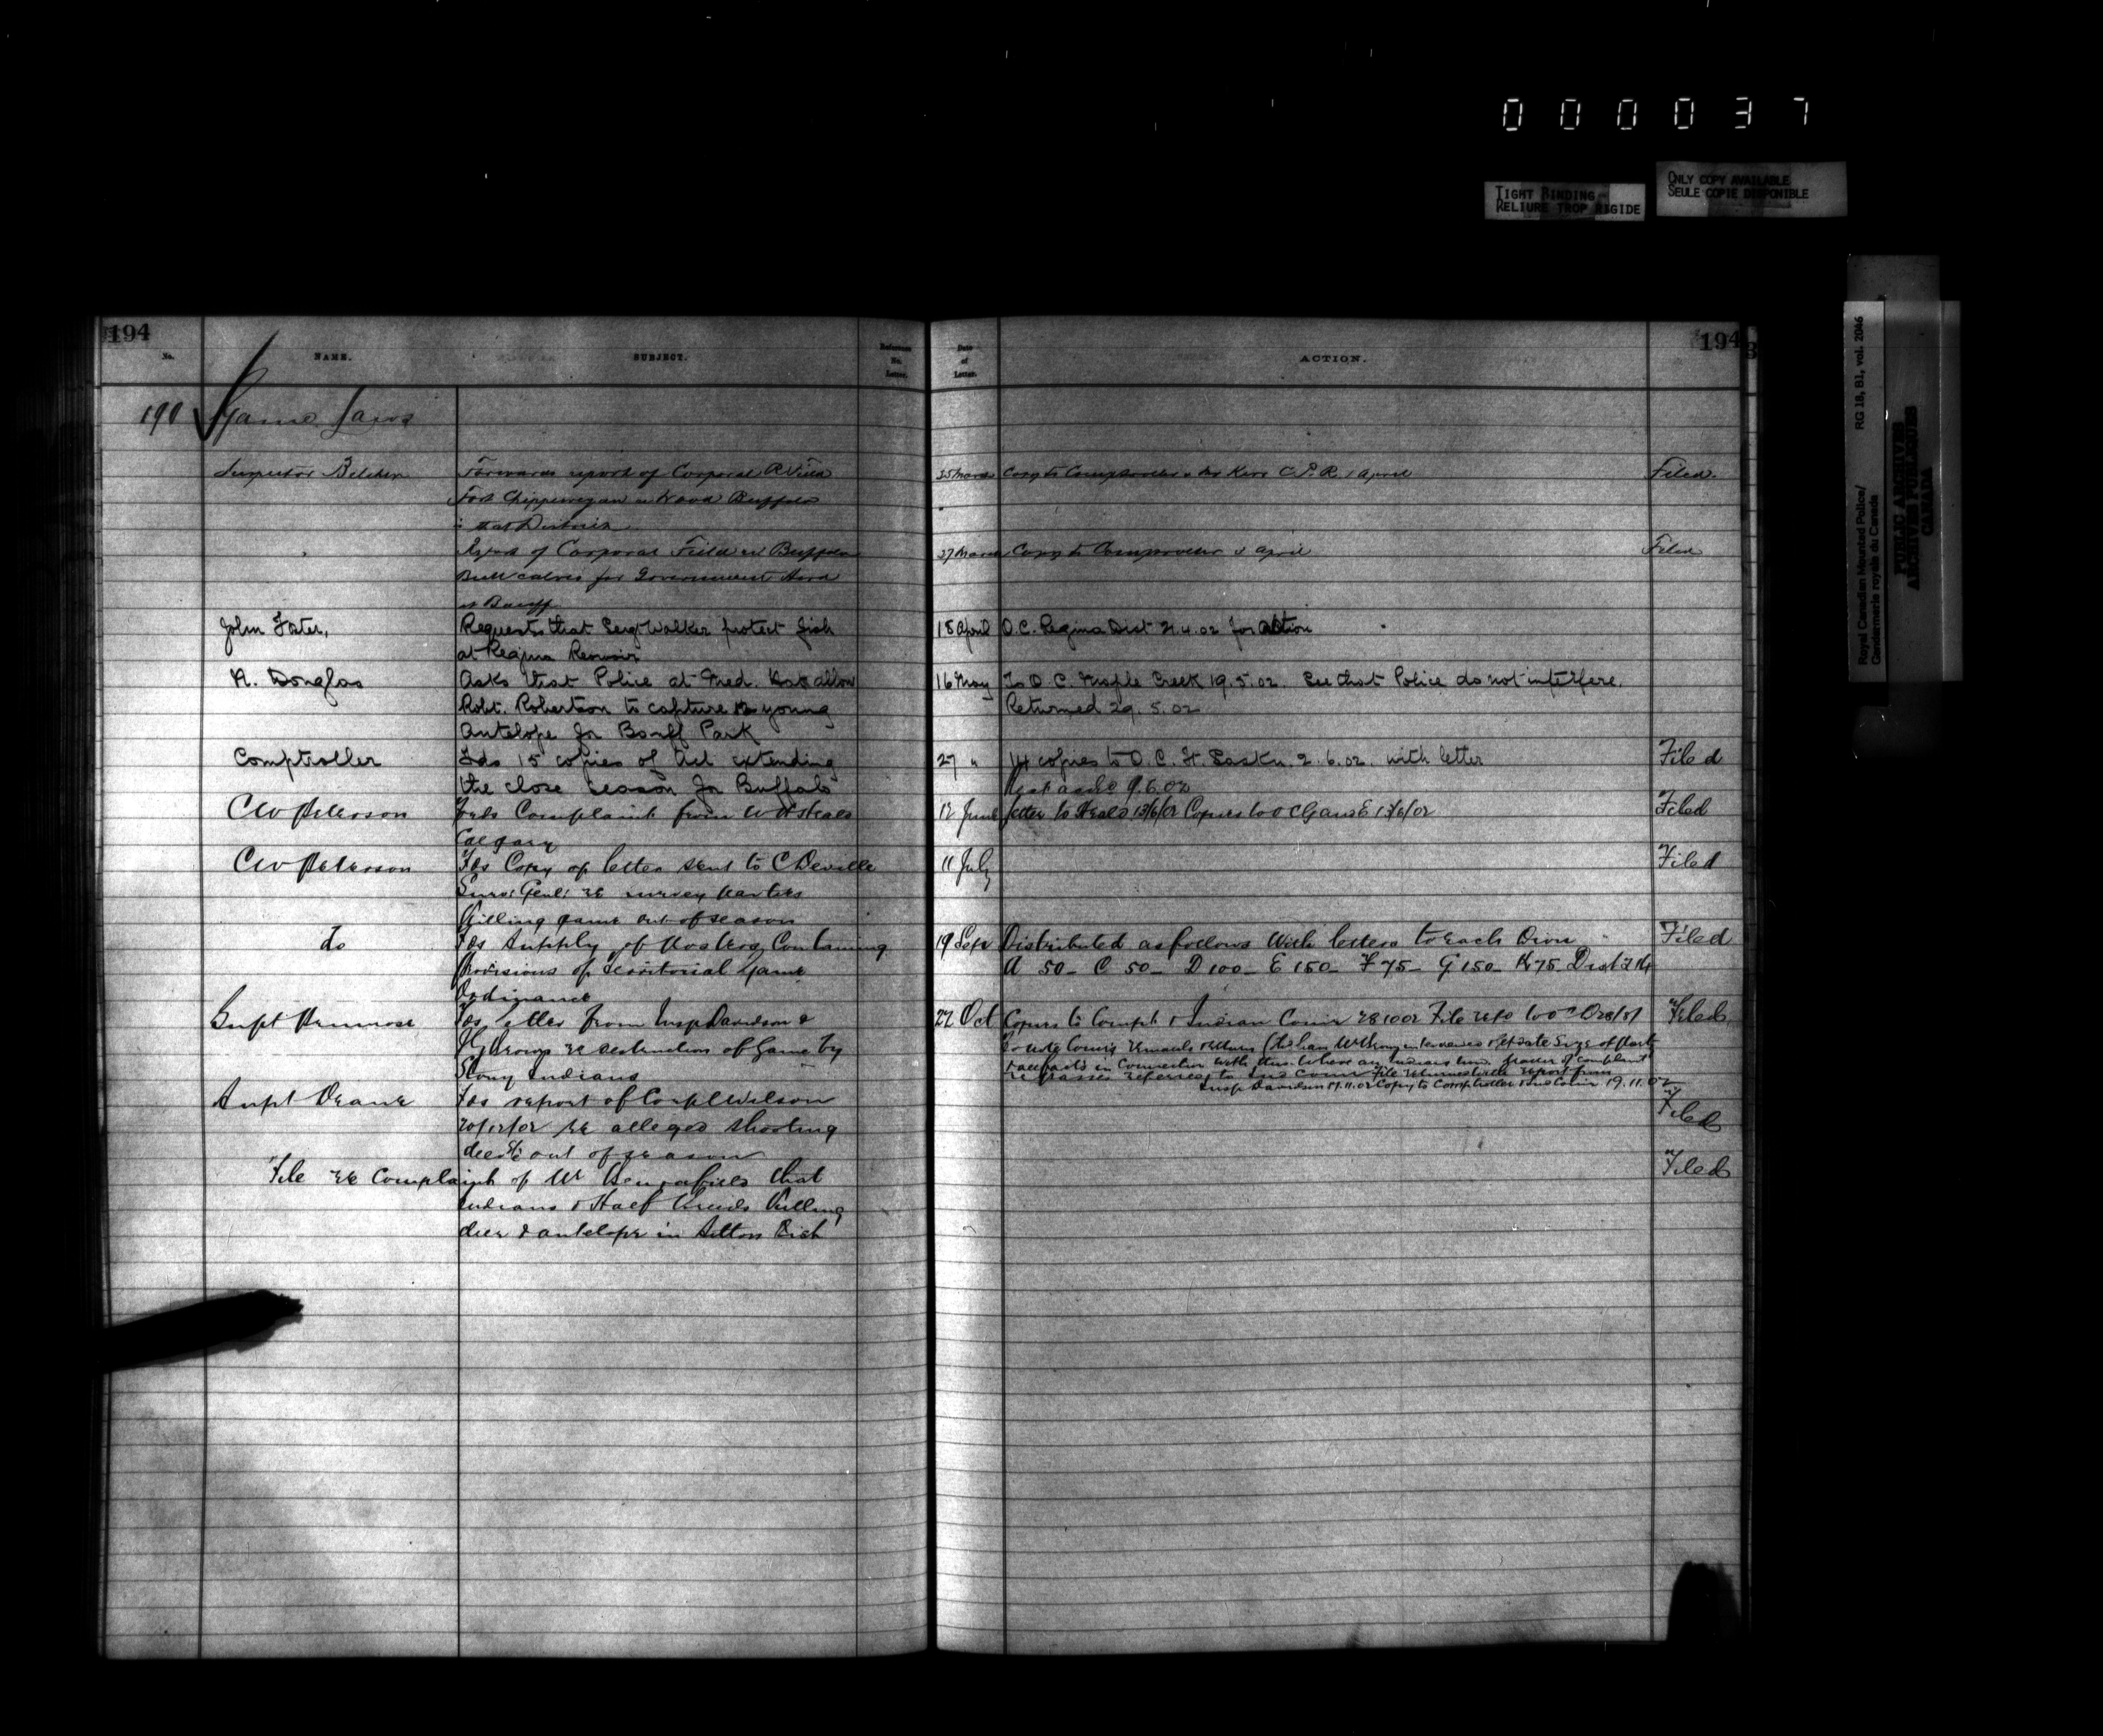 000037
TIGHT BINDING
RELIURE TROP RIGIDE
ONLY COPY AVAILABLE
SEULE COPIE DISPONIBLE
Royal Canadian Mounted Police/
Gendarmerie royale du Canada
RG 18, B1, vol. 2046
PUBLIC ARCHIVES
ARCHIVES PUBLIQUES
CANADA
194
194
No. NAME. SUBJECT. Reference No. Letter. Date of Letter. ACTION.
190 Game Laws
Inspector Belcher Forwards report of Corporal Field 25 March Copy to Comptroller & Mr Kerr C.P.R. 1 April Filed.
Fort Chippewyan re Wood Buffalo
in that District
Report of Corporal Field re Buffalo 27 March Copy to Comptroller 3 April Filed
Bull calves for Government Herd
at Banff
John Foster, Requests that Sergt Walker protect fish 18 April O.C. Regina Dist 21.4.02 for action
at Regina Reservoir
H. Douglas Asks that Police at Med. Hat allow 16 May To O C. Maple Creek 19.5.02. See that Police do not interfere.
Robt. Robertson to capture 12 young Returned 29.5.02
Antelope for Banff Park
Comptroller Fds 15 copies of Act extending 27 " 14 copies to O.C. Ft. Saskn. 2.6.02. with letter Filed
the close season for Buffalo 9.6.02
C W Peterson Fwds Complaint from W H Heald 12 June letter to Heald 13/6/02 Copies to O C G and E 13/6/02 Filed
Calgary
C W Peterson Fds Copy of letter sent to C Deville 11 July Filed
Surv: Genl: re survey parties
Killing game out of season
Do Fds Supply of Posters Containing 19 Sept Distributed as follows With letters to each Divn Filed
Provisions of Territorial Game A 50 - C 50 - D 100 - E 150 - F 75 - G 150 - K 75 Dist
Ordinance
Supt Primrose Fds letter from Insp Davidson & 22 Oct Copies to Compt & Indian Comr 28 10 02 File Filed
re destruction of Game by
Stony Indians in Connection with this
referred to Ind Comr File returned with report from
Insp Davidson 11.11.02 Copy to Comptroller & Ind Comr 19.11.02
Supt Deane Fds report of Corpl Wilson Filed
re alleged shooting
deer &c out of season
File re Complaint of Mr that Filed
Indians & Half breeds Killing
deer & antelope in Dist